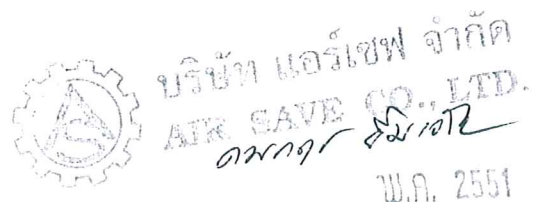 บริษัท แอร์เซฟ จำกัด
AIR SAVE CO., LTD.
พ.ศ. 2551